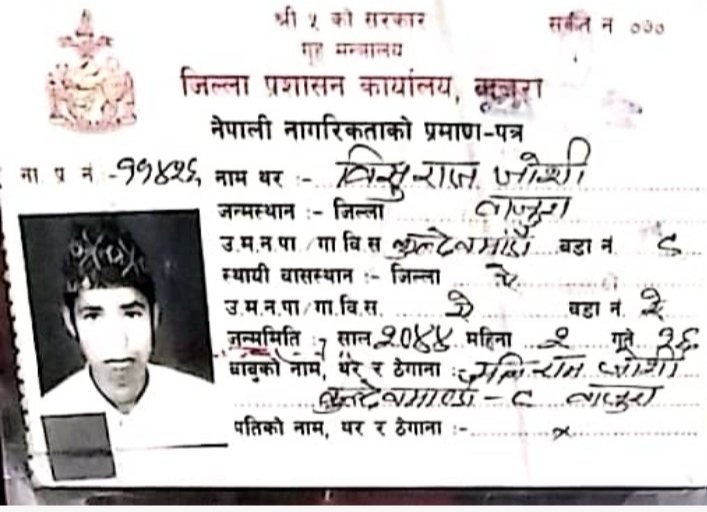 श्री ५ को सरकार
संकेत नं ०७०
गृह मन्त्रालय
जिल्ला प्रशासन कार्यालय, बाजुरा
नेपाली नागरिकताको प्रमाण-पत्र
ना. प्र. नं -११४२६ नाम थर :- विसुराज जोशी
जन्मस्थान :- जिल्ला बाजुरा
उ.म.न.पा./गा.वि.स कुल्देवमाडौं वडा नं. ८
स्थायी वासस्थान :- जिल्ला ऐ
उ.म.न.पा./गा.वि.स. ऐ वडा नं. ऐ
जन्ममिति :- साल २०४४ महिना २ गते २६
बाबुको नाम, थर र ठेगाना :- जोशी
कुल्देवमाण्डौ - ८ बाजुरा
पतिको नाम, थर र ठेगाना :- x